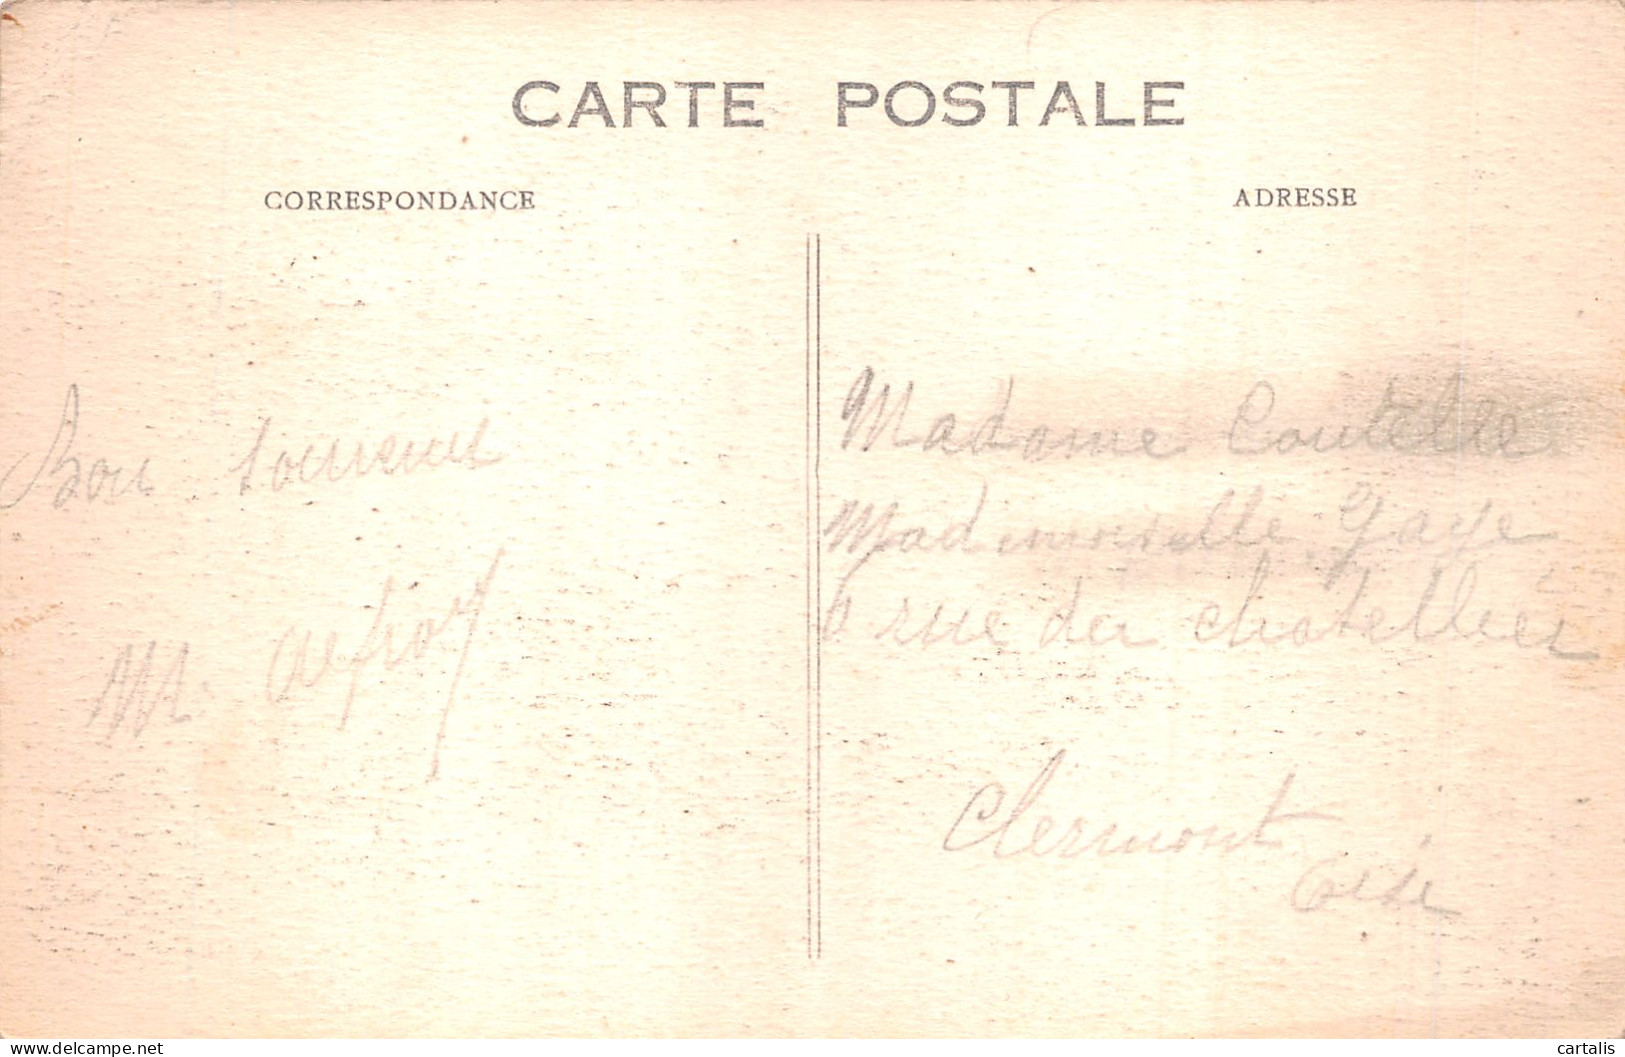 CARTE POSTALE
CORRESPONDANCE
ADRESSE
Bon souvenir
M.
Madame Coutelle
Mademoiselle Gaye
6 rue des chatelliers
Clermont
Oise
www.delcampe.net
cartalis